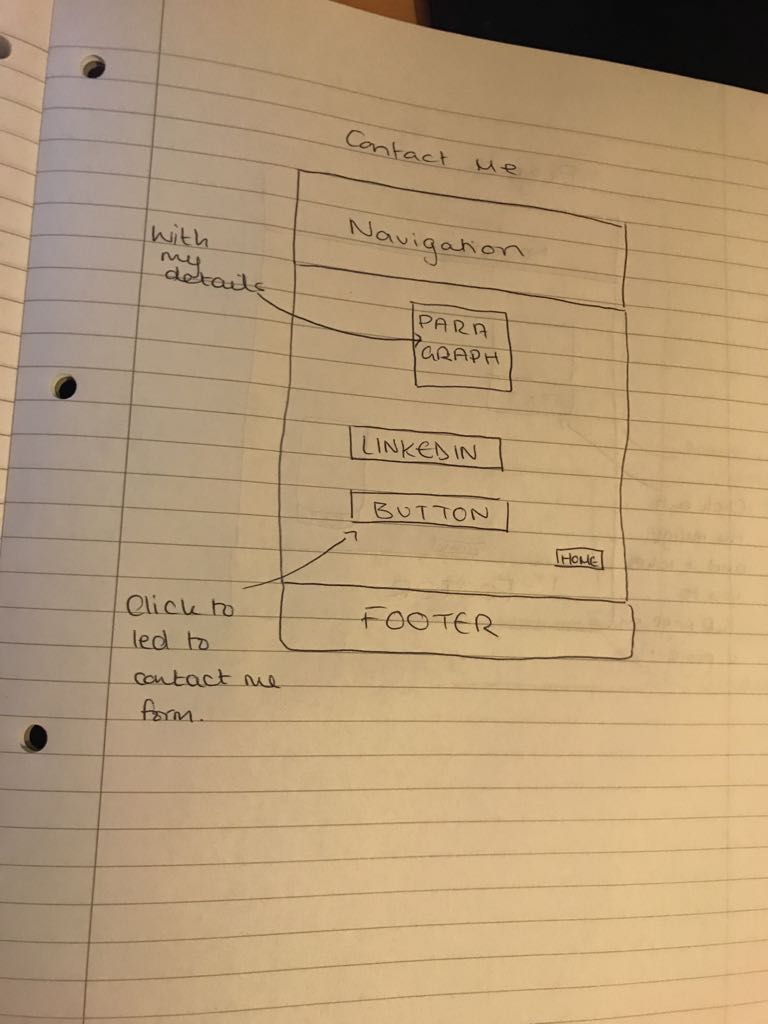 Contact Me
Navigation
With
my
details
PARA
GRAPH
LINKEDIN
BUTTON
HOME
Click to
led to
contact me
form.
FOOTER